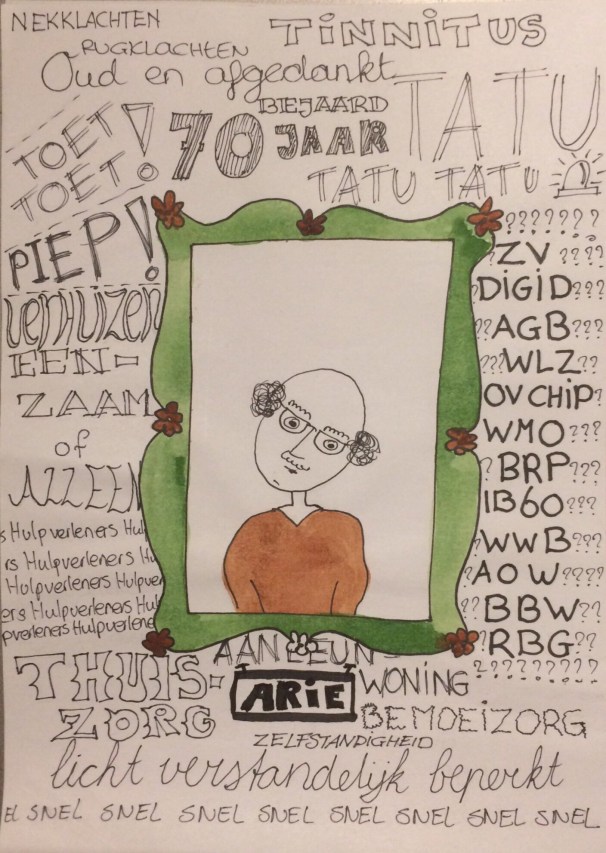 NEKKLACHTEN
TINNITUS
RUGKLACHTEN
Oud en afgedankt
BEJAARD
70 JAAR
TATU
TATU TATU
TOET
TOET!
PIEP!
VERHUIZEN
EEN-
ZAAM
of
ALLEEN
s Hulpverleners Hul
rs Hulpverleners Hu
Hulpverleners Hulpver
ers Hulpverleners Hul
pverleners Hulpverlene
???????
ZV ????
DIGID???
??AGB???
???WLZ??
OV CHIP?
WMO???
?BRP???
IB60???
?WWB???
AOW????
??BBW??
?RBG??
?????????
AANLEUN-
WONING
THUIS-
ZORG
ARIE
BEMOEIZORG
ZELFSTANDIGHEID
licht verstandelijk beperkt
EL SNEL SNEL SNEL SNEL SNEL SNEL SNEL SNEL